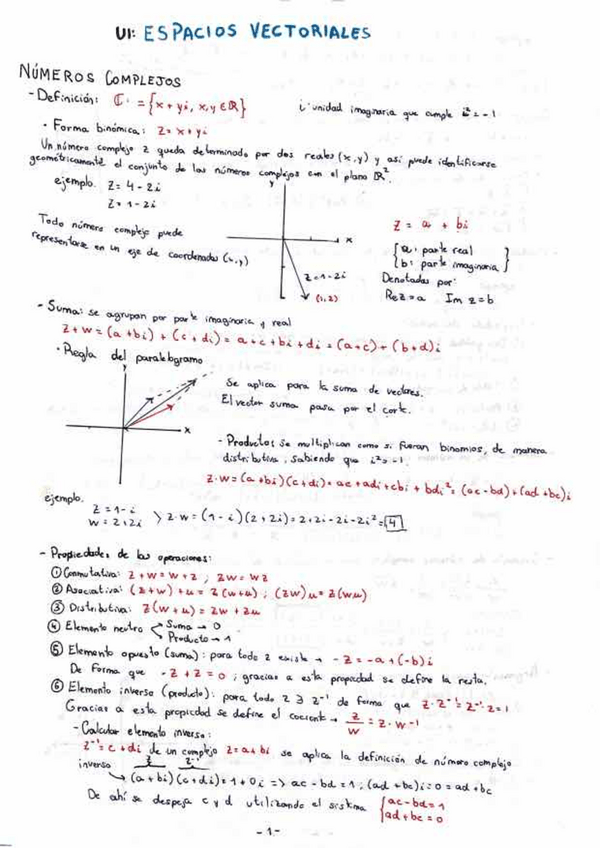 UI: ESPACIOS VECTORIALES
NÚMEROS COMPLEJOS
- Definición: ℂ := {x + yi, x, y ∈ ℝ}    i: unidad imaginaria que cumple i² = -1
· Forma binómica: z = x + yi
Un número complejo z queda determinado por dos reales (x, y) y así puede identificarse
geométricamente el conjunto de los números complejos con el plano ℝ².
ejemplo. z = 4 - 2i
z = 1 - 2i
Todo número complejo puede
representarse en un eje de coordenadas (x, y)
y
x
z = 1 - 2i
(1, 2)
z = a + bi
{a: parte real
b: parte imaginaria}
Denotadas por:
Re z = a    Im z = b
- Suma: se agrupan por parte imaginaria y real
z + w = (a + bi) + (c + di) = a + c + bi + di = (a + c) + (b + d)i
· Regla del paralelogramo
y
x
Se aplica para la suma de vectores.
El vector suma pasa por el corte.
- Producto: se multiplican como si fueran binomios, de manera
distributiva, sabiendo que i² = -1.
z·w = (a + bi)(c + di) = ac + adi + cbi + bdi² = (ac - bd) + (ad + bc)i
ejemplo.
z = 1 - i
w = 2 + 2i
z·w = (1 - i)(2 + 2i) = 2 + 2i - 2i - 2i² = 4
- Propiedades de las operaciones:
① Conmutativa: z + w = w + z ; zw = wz
② Asociativa: (z + w) + u = z (w + u) ; (zw)u = z(wu)
③ Distributiva: z(w + u) = zw + zu
④ Elemento neutro < Suma → 0
Producto → 1
⑤ Elemento opuesto (suma): para todo z existe → -z = -a + (-b)i
De forma que -z + z = 0 ; gracias a esta propiedad se define la resta.
⑥ Elemento inverso (producto): para todo z ∃ z⁻¹ de forma que z·z⁻¹ = z⁻¹·z = 1
Gracias a esta propiedad se define el cociente → z/w = z·w⁻¹
- Calcular elemento inverso:
z⁻¹ = c + di de un complejo z = a + bi se aplica la definición de número complejo
inverso z z⁻¹
→ (a + bi)(c + di) = 1 + 0i => ac - bd = 1 ; (ad + bc)i = 0 = ad + bc
De ahí se despeja c y d utilizando el sistema {ac - bd = 1
ad + bc = 0
- 1 -